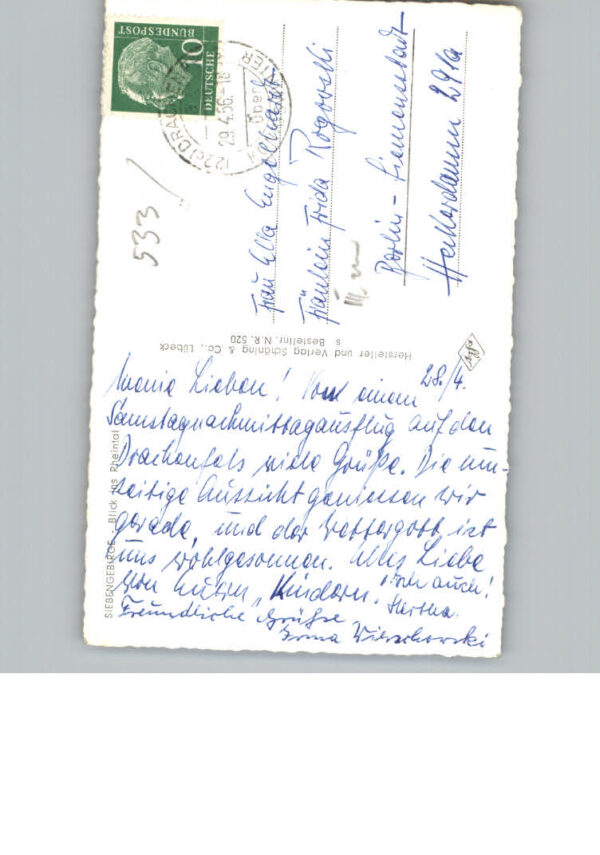 28./4.
Meine Lieben! Von einem
Samstagnachmittagausflug auf den
Drachenfels viele Grüße. Die um-
seitige Aussicht geniessen wir
gerade, und der Wettergott ist
uns wohlgesonnen. Alles Liebe
von Euren "Kindern".
Ich auch!
Hertha.
Freundliche Grüße
Irma
Frau Ella Engelhardt
Fräulein Frida Rogowelli
Berlin-Siemensstadt
Heckerdamm 291a
533
DEUTSCHE
BUNDESPOST
10
29.4.56.-18
über
Hersteller und Verlag Schöning & Co., Lübeck
s Bestellnr. N.R. 520
SIEBENGEBIRGE - Blick ins Rheintal